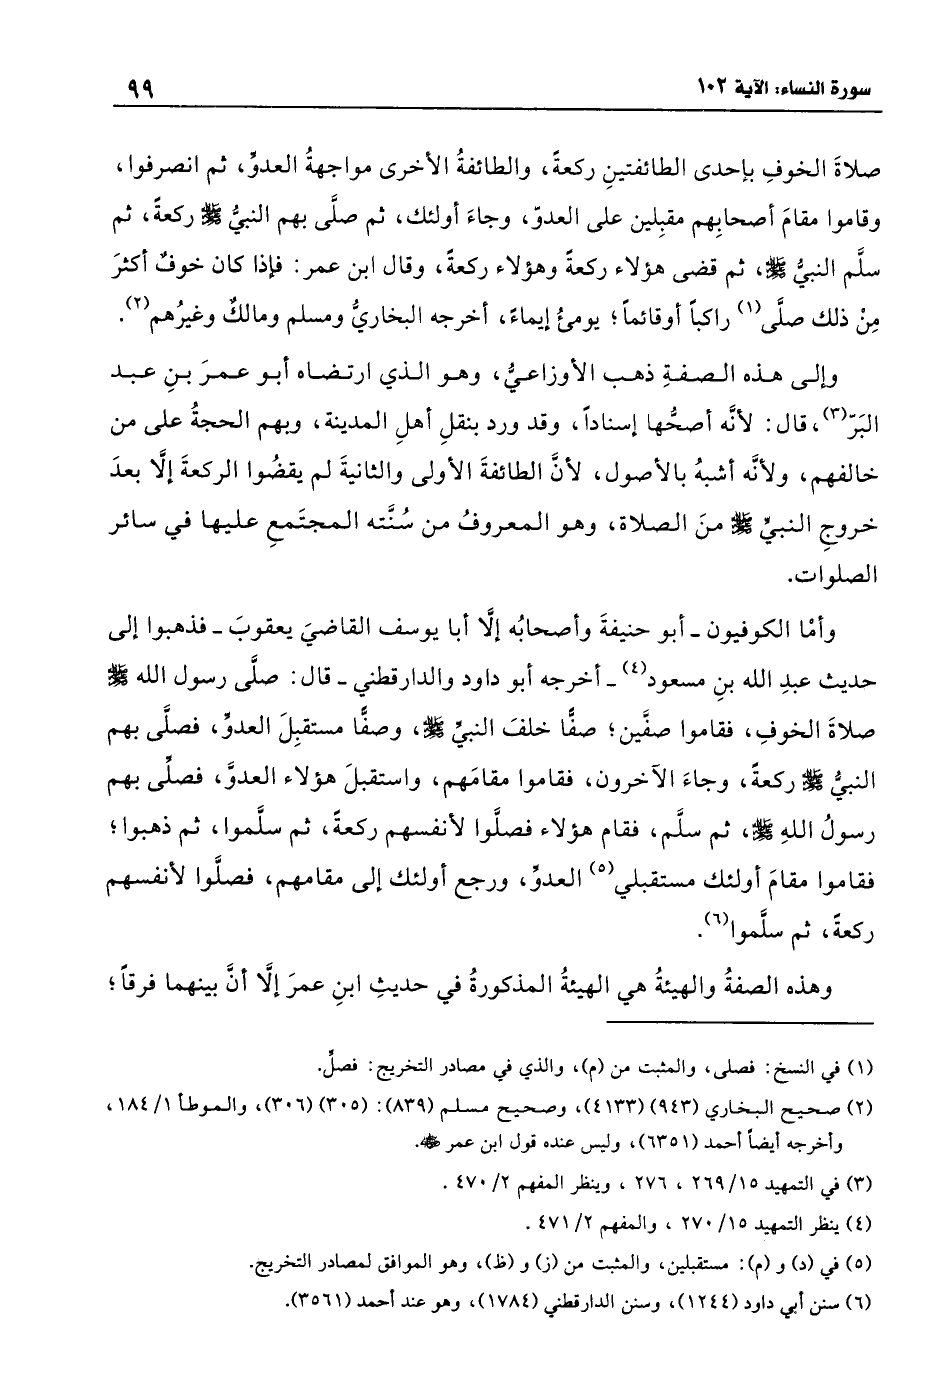 سورة النساء: الآية ١٠٢
٩٩
صلاةَ الخوفِ بإحدى الطائفتينِ ركعةً، والطائفةُ الأخرى مواجهةُ العدوِّ، ثم انصرفوا،
وقاموا مقامَ أصحابِهم مقبِلين على العدوّ، وجاءَ أولئك، ثم صلَّى بهم النبيُّ ﷺ ركعةً، ثم
سلَّم النبيُّ ﷺ، ثم قضى هؤلاء ركعةً وهؤلاء ركعةً، وقال ابن عمر: فإذا كان خوفٌ أكثرَ
مِنْ ذلك صلَّى(١) راكباً أوقائماً؛ يومئُ إيماءً، أخرجه البخاريُّ ومسلم ومالكٌ وغيرُهم(٢).
وإلى هذه الصفةِ ذهب الأوزاعيُّ، وهو الذي ارتضاه أبو عمرَ بنِ عبد
البَرّ(٣)، قال: لأنَّه أصحُّها إسناداً، وقد ورد بنقلِ أهلِ المدينة، وبهم الحجةُ على من
خالفهم، ولأنَّه أشبهُ بالأصول، لأنَّ الطائفةَ الأولى والثانيةَ لم يقضُوا الركعةَ إلَّا بعدَ
خروجِ النبيِّ ﷺ منَ الصلاة، وهو المعروفُ من سُنَّته المجتَمعِ عليها في سائر
الصلوات.
وأمْا الكوفيون ـ أبو حنيفةَ وأصحابُه إلَّا أبا يوسف القاضيَ يعقوبَ ـ فذهبوا إلى
حديث عبدِ الله بنِ مسعود(٤) ـ أخرجه أبو داود والدارقطني ـ قال: صلَّى رسول الله ﷺ
صلاةَ الخوفِ، فقاموا صفَّين؛ صفًّا خلفَ النبيِّ ﷺ، وصفًّا مستقبِلَ العدوِّ، فصلَّى بهم
النبيُّ ﷺ ركعةً، وجاءَ الآخرون، فقاموا مقامَهم، واستقبلَ هؤلاء العدوَّ، فصلَّى بهم
رسولُ اللهِ ﷺ، ثم سلَّم، فقام هؤلاء فصلَّوا لأنفسهم ركعةً، ثم سلَّموا، ثم ذهبوا؛
فقاموا مقامَ أولئك مستقبلي(٥) العدوِّ، ورجع أولئك إلى مقامهم، فصلَّوا لأنفسهم
ركعةً، ثم سلَّموا(٦).
وهذه الصفةُ والهيئةُ هي الهيئةُ المذكورةُ في حديثِ ابنِ عمرَ إلَّا أنَّ بينهما فرقاً؛
(١) في النسخ: فصلى، والمثبت من (م)، والذي في مصادر التخريج: فصلِّ.
(٢) صحيح البخاري (٩٤٣) (٤١٣٣)، وصحيح مسلم (٨٣٩): (٣٠٥) (٣٠٦)، والموطأ ١/ ١٨٤،
وأخرجه أيضاً أحمد (٦٣٥١)، وليس عنده قول ابن عمر ﷺ.
(٣) في التمهيد ١٥/ ٢٦٩ ، ٢٧٦ ، وينظر المفهم ٢/ ٤٧٠ .
(٤) ينظر التمهيد ١٥/ ٢٧٠ ، والمفهم ٢/ ٤٧١ .
(٥) في (د) و (م): مستقبلين، والمثبت من (ز) و (ظ)، وهو الموافق لمصادر التخريج.
(٦) سنن أبي داود (١٢٤٤)، وسنن الدارقطني (١٧٨٤)، وهو عند أحمد (٣٥٦١).